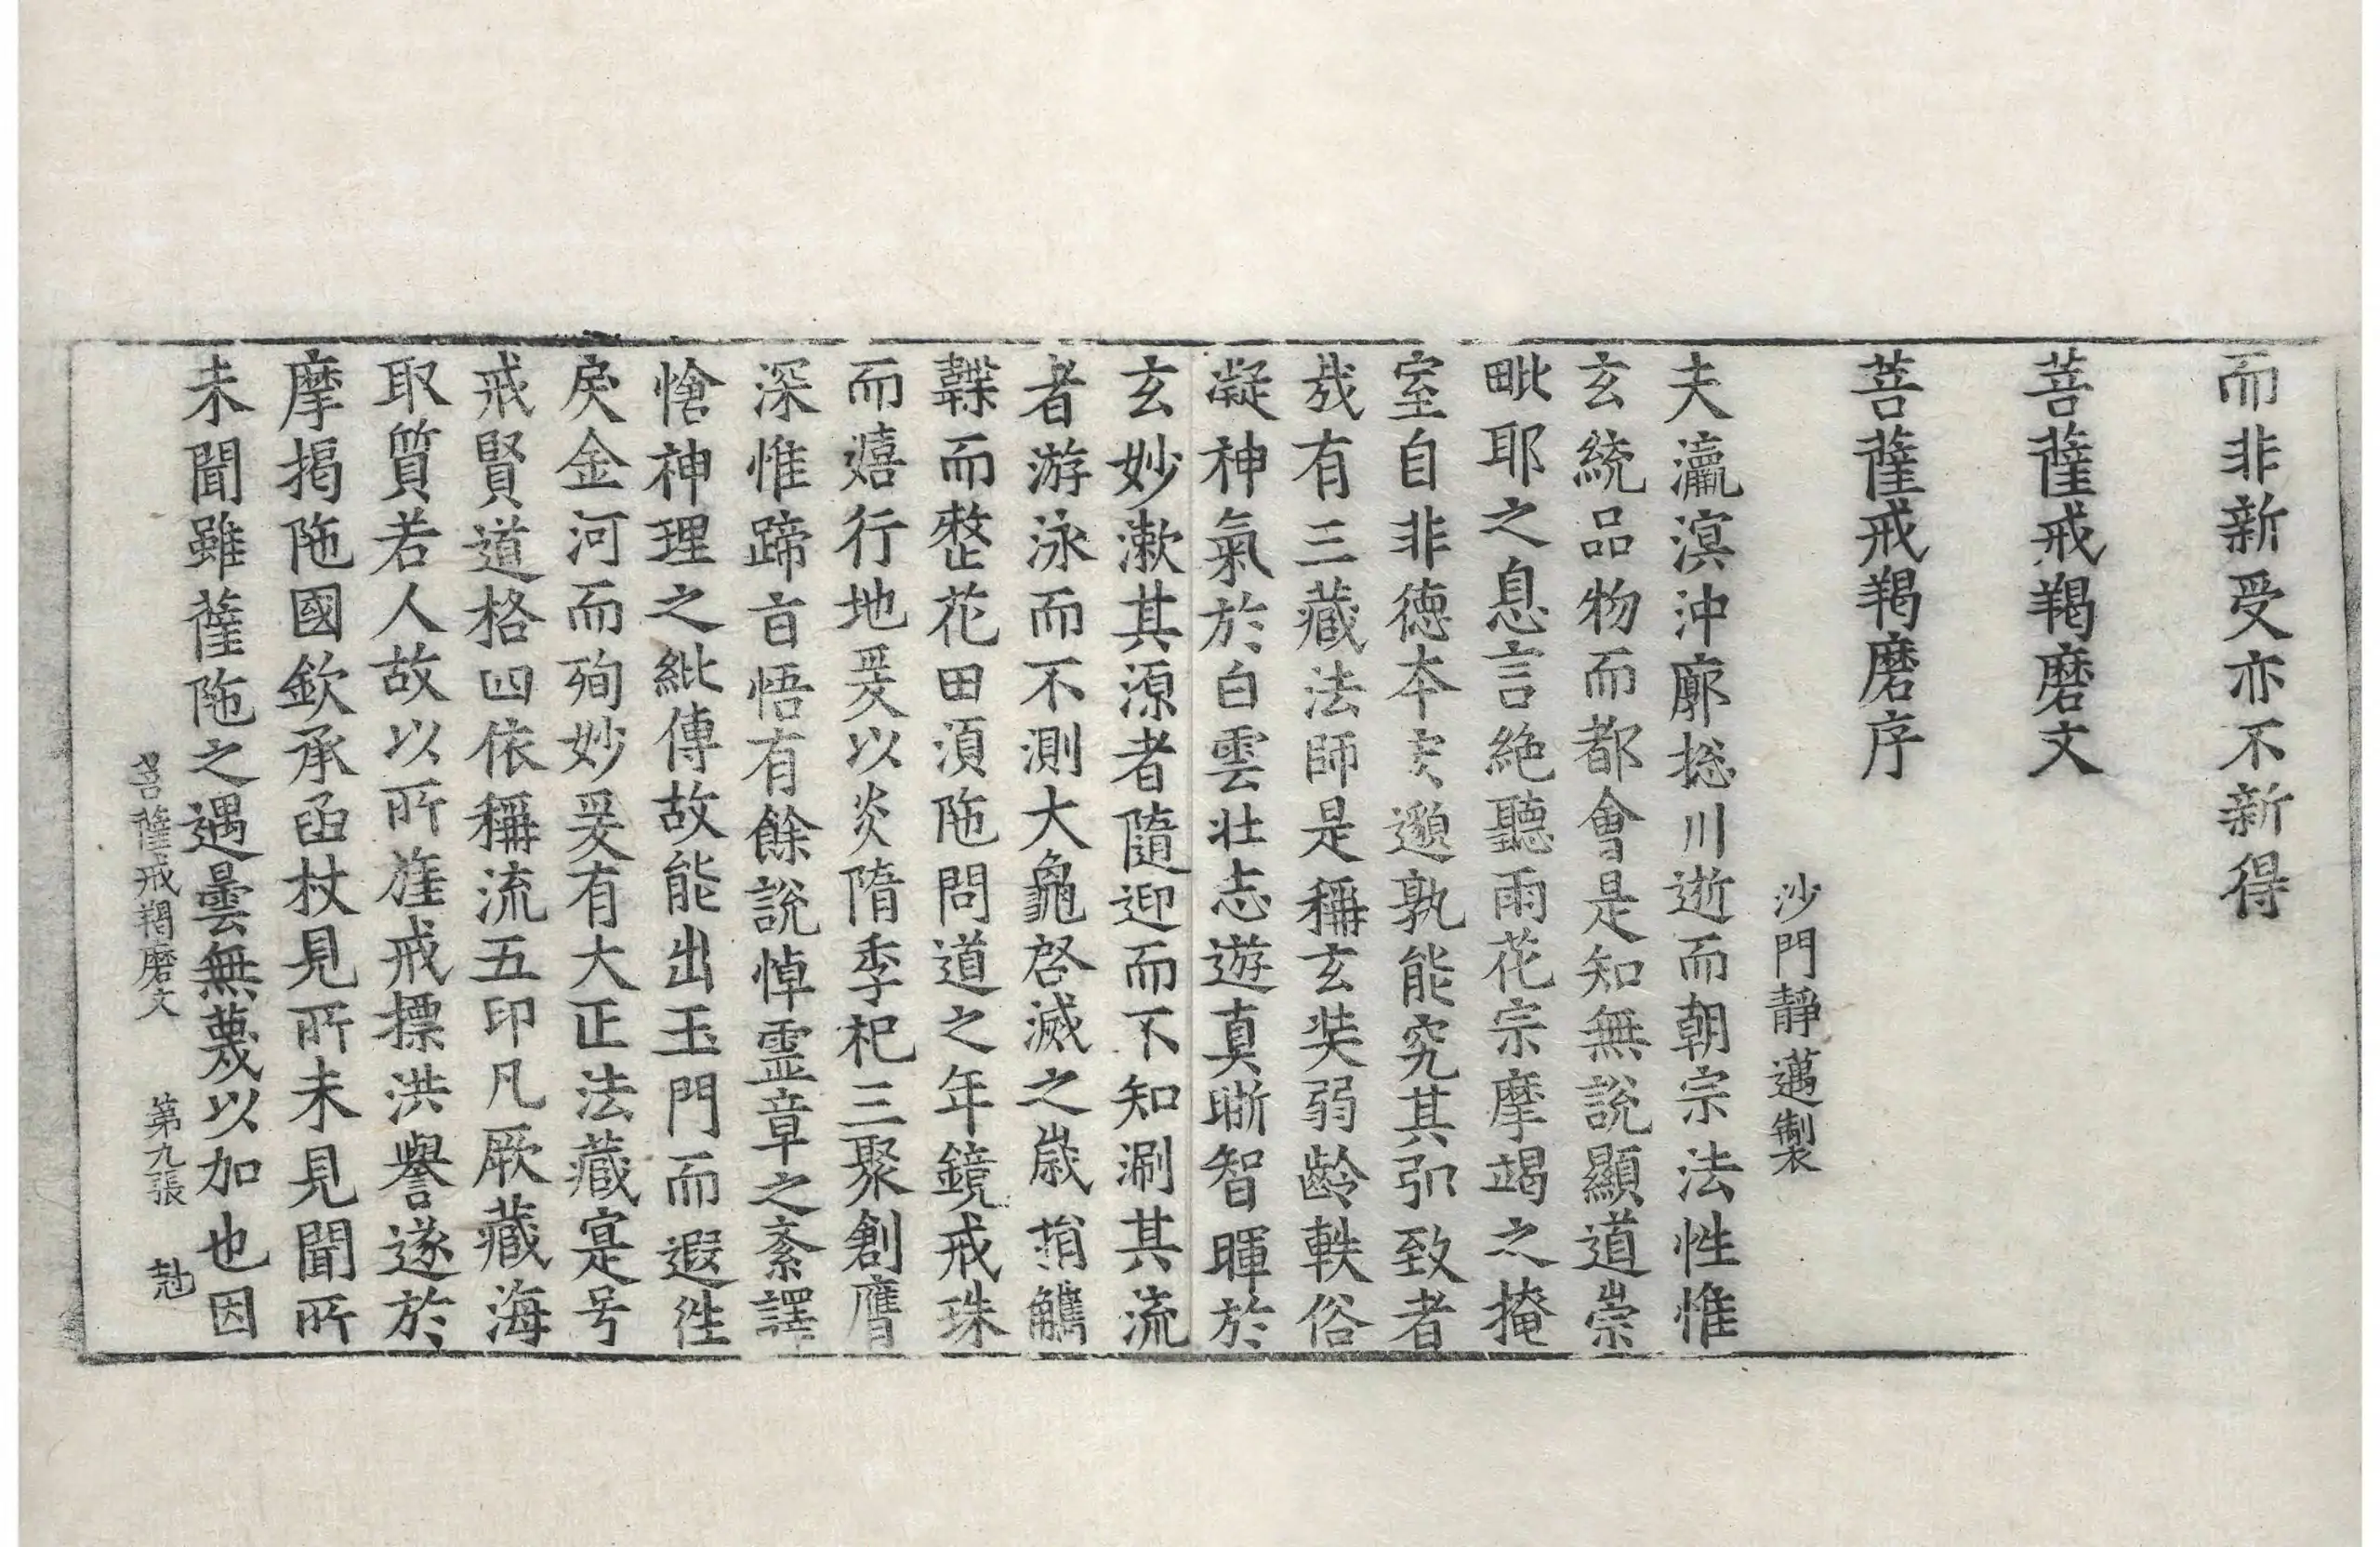 而非新受亦不新得
菩薩戒羯磨文
菩薩戒羯磨序
沙門靜邁製
夫瀛溟沖廓揔川逝而朝宗法性惟
玄統品物而都會是知無說顯道崇
毗耶之息言絶聽雨花宗摩竭之掩
室自非德本玄邈孰能究其弘致者
哉有三藏法師是稱玄奘弱齡軼俗
凝神氣於白雲壯志遊真晣智暉於
玄妙漱其源者隨迎而不知涮其流
者游泳而不測大龜啓滅之歲捎觿
韘而整花田湏陁問道之年鏡戒珠
而嬉行地爰以炎隋季祀三聚創膺
深惟蹄㫖悟有餘說悼靈章之紊譯
愴神理之紕傳故能出玉門而遐徃
戾金河而殉妙爰有大正法藏寔号
戒賢道格四依稱流五印凡厥藏海
取質若人故以所薩戒摽洪譽遂於
摩揭陁國欽承函杖見所未見聞所
未聞雖薩陁之遇曇無蔑以加也因
菩薩戒羯磨文 第九張